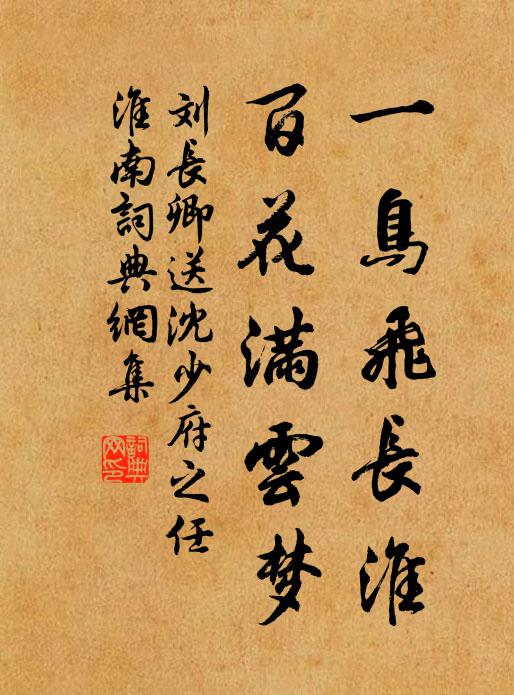 一鳥飛長淮
百花满雲梦
刘長卿送沈少府之任
淮南詞典網集
詞典
网印